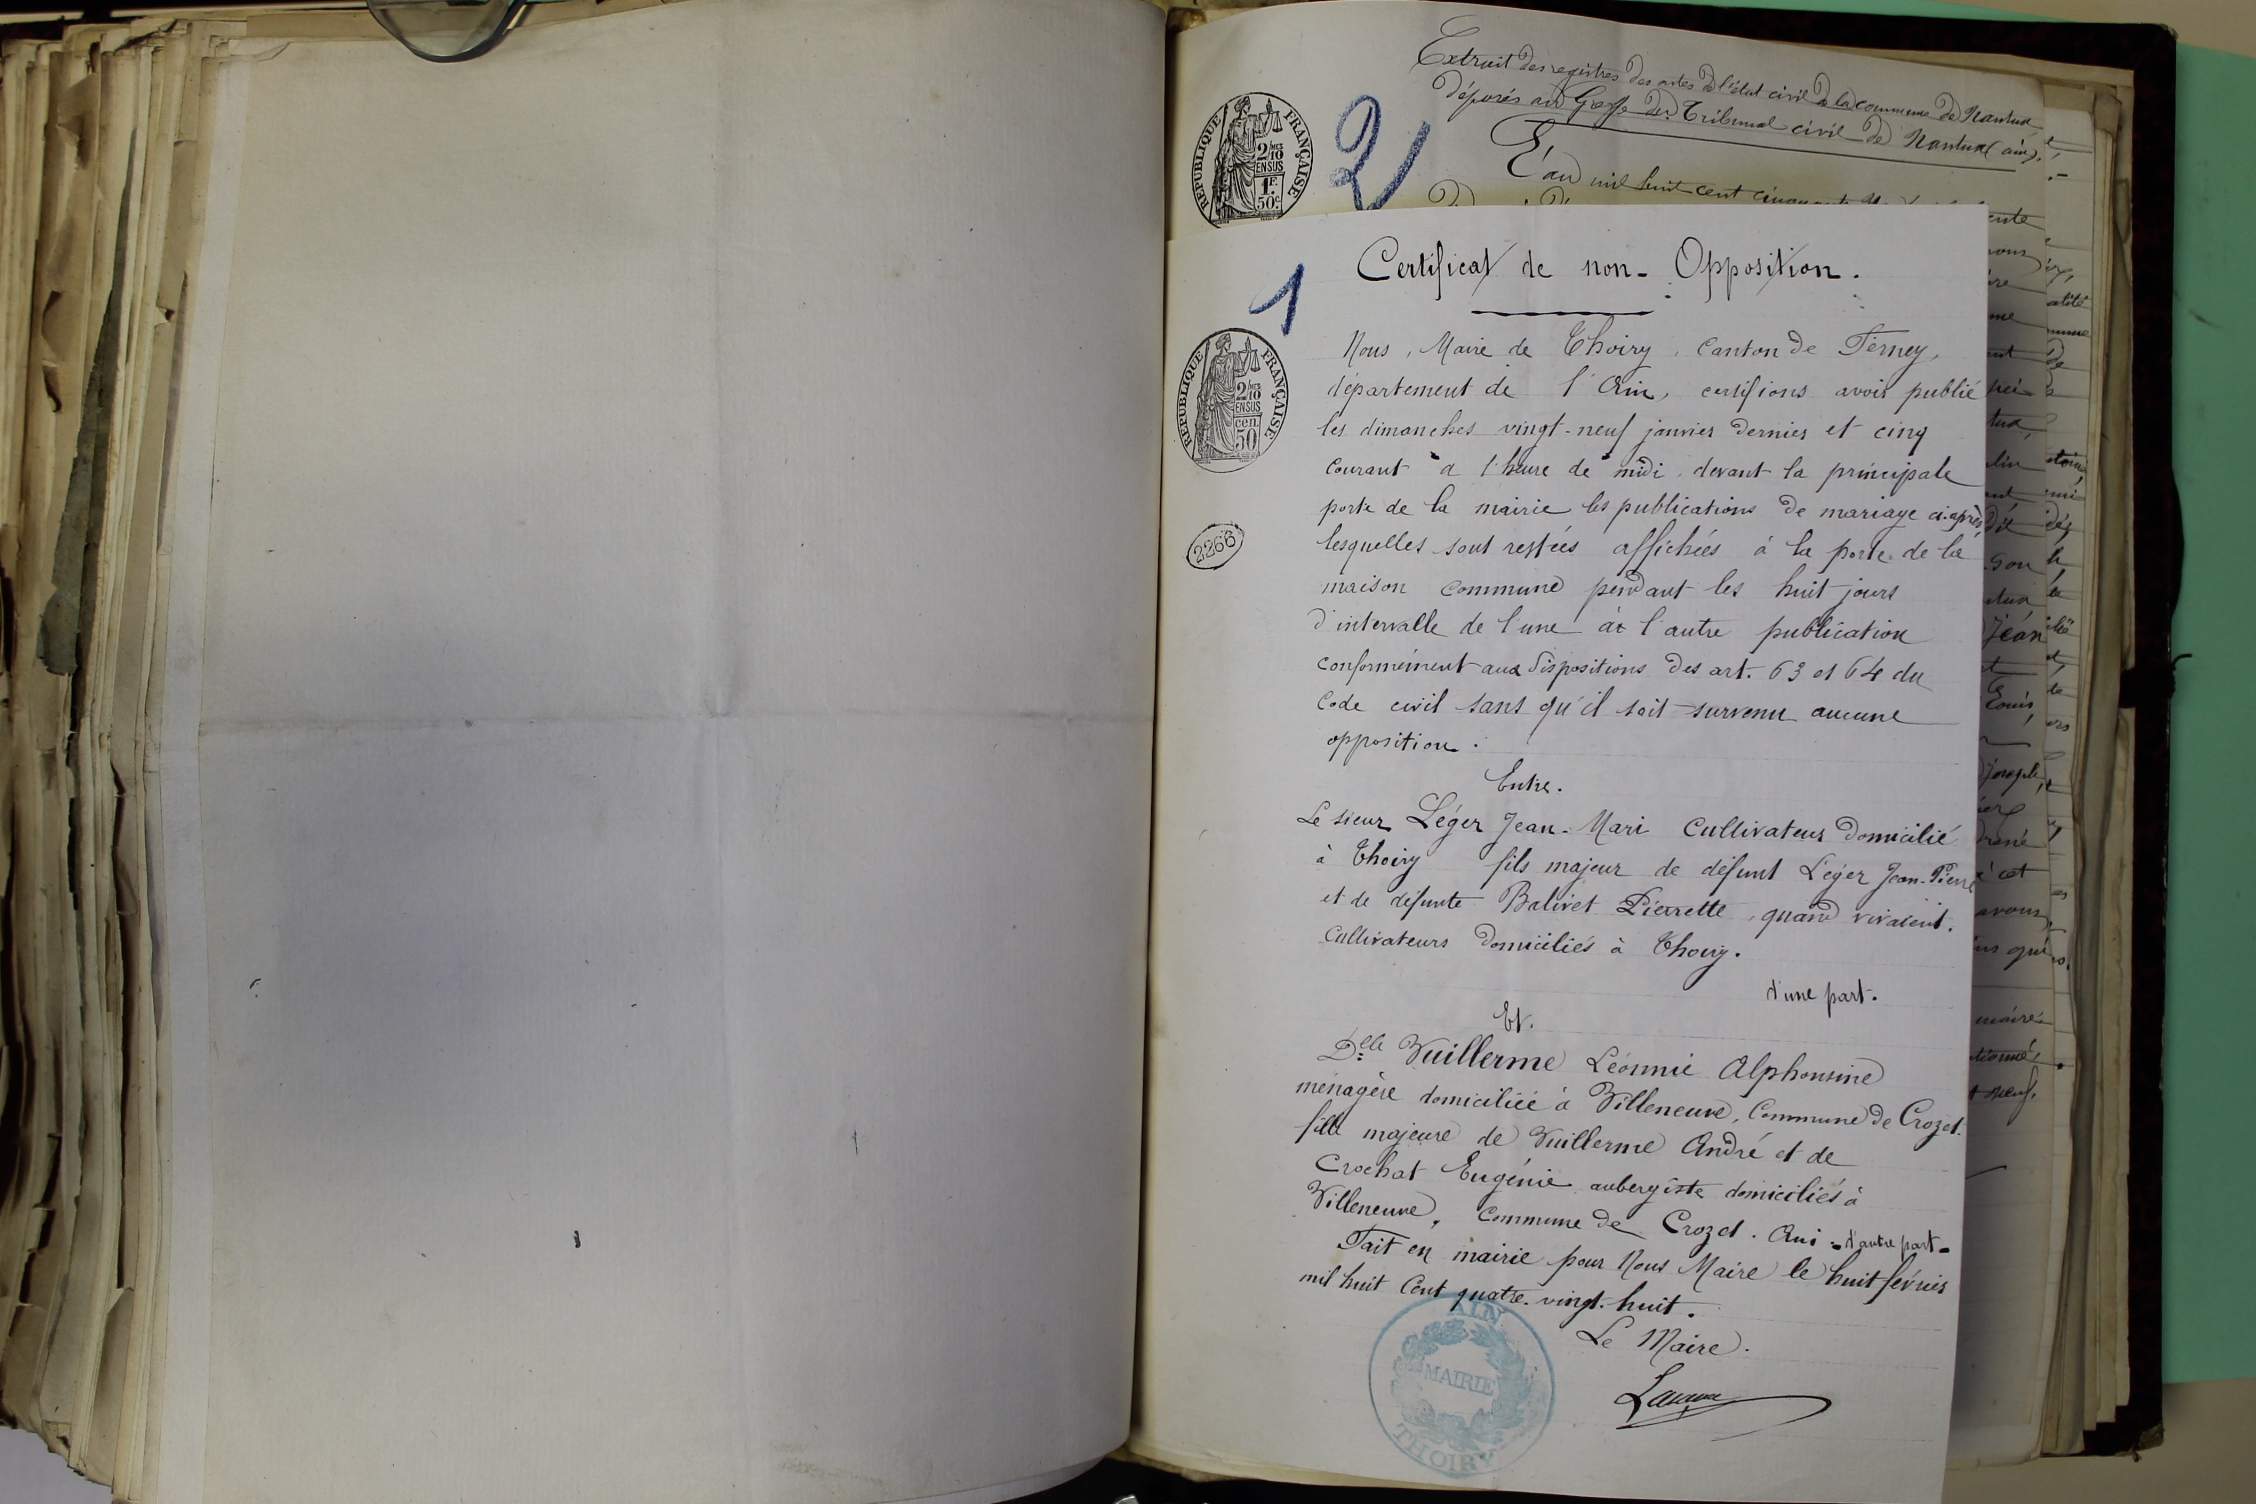 Extrait des registres des actes de l'état civil de la commune de Nantua
déposés au Greffe du Tribunal civil de Nantua (ain).
L'an mil huit cent
2
REPUBLIQUE FRANÇAISE
2/10 EN SUS
1F. 50c.
1
REPUBLIQUE FRANÇAISE
2/10 EN SUS
cen. 50
2266
Certificat de non-Opposition.
Nous, Maire de Thoiry, Canton de Ferney,
département de l'Ain, certifions avoir publié
les dimanches vingt-neuf janvier dernier et cinq
Courant à l'heure de midi, devant la principale
porte de la mairie les publications de mariage ci-après
lesquelles sont restées affichées à la porte de la
maison Commune pendant les huit jours
d'intervalle de l'une à l'autre publication
conformément aux dispositions des art. 63 et 64 du
Code civil sans qu'il soit survenu aucune
opposition.
Entre.
Le sieur Léger Jean-Mari Cultivateur domicilié
à Thoiry fils majeur de défunt Léger Jean-Pierre
et de défunte Balivet Pierrette, quand vivaient.
Cultivateurs domiciliés à Thoiry.
d'une part.
Et.
Delle Vuillerme Léonnie Alphonsine
ménagère domiciliée à Villeneuve, Commune de Crozet.
fille majeure de Vuillerme André et de
Crochat Eugénie aubergiste domiciliés à
Villeneuve, Commune de Crozet. Ain - d'autre part -
Fait en mairie pour Nous Maire le huit février
mil huit Cent quatre-vingt-huit.
Le Maire.
AIN
MAIRIE
THOIRY